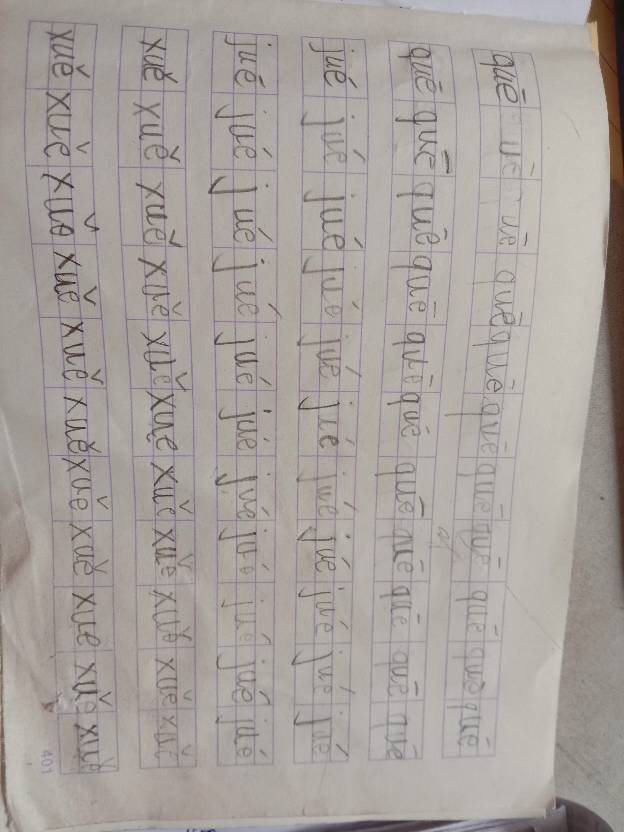 quē uē uē quē quē quē quē quē quē quē quē
quē quē quē quē quē quē quē quē quē quē quē
jué jué jué jué jué jué jué jué jué jué jué
jué jué jué jué jué jué jué jué jué jué jué
xuě xuě xuě xuě xuě xuě xuě xuě xuě xuě xuě
xuě xuě xuě xuě xuě xuě xuě xuě xuě xuě xuě
401